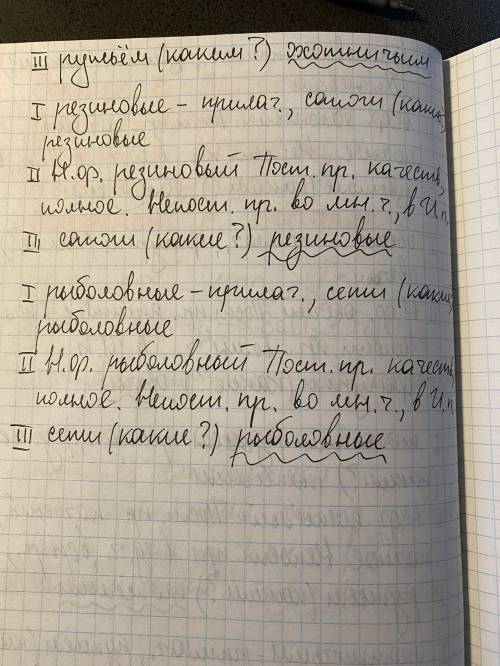 III ружьём (каким?) охотничьим
I резиновые - прилаг., сапоги (какие,
резиновые
II Н.ф. резиновый Пост. пр. качеств,
полное. Непост. пр. во мн.ч., в И.п.
III сапоги (какие?) резиновые
I рыболовные - прилаг., сети (какие,
рыболовные
II Н.ф. рыболовный Пост. пр. качеств,
полное. Непост. пр. во мн.ч., в И.п.
III сети (какие?) рыболовные